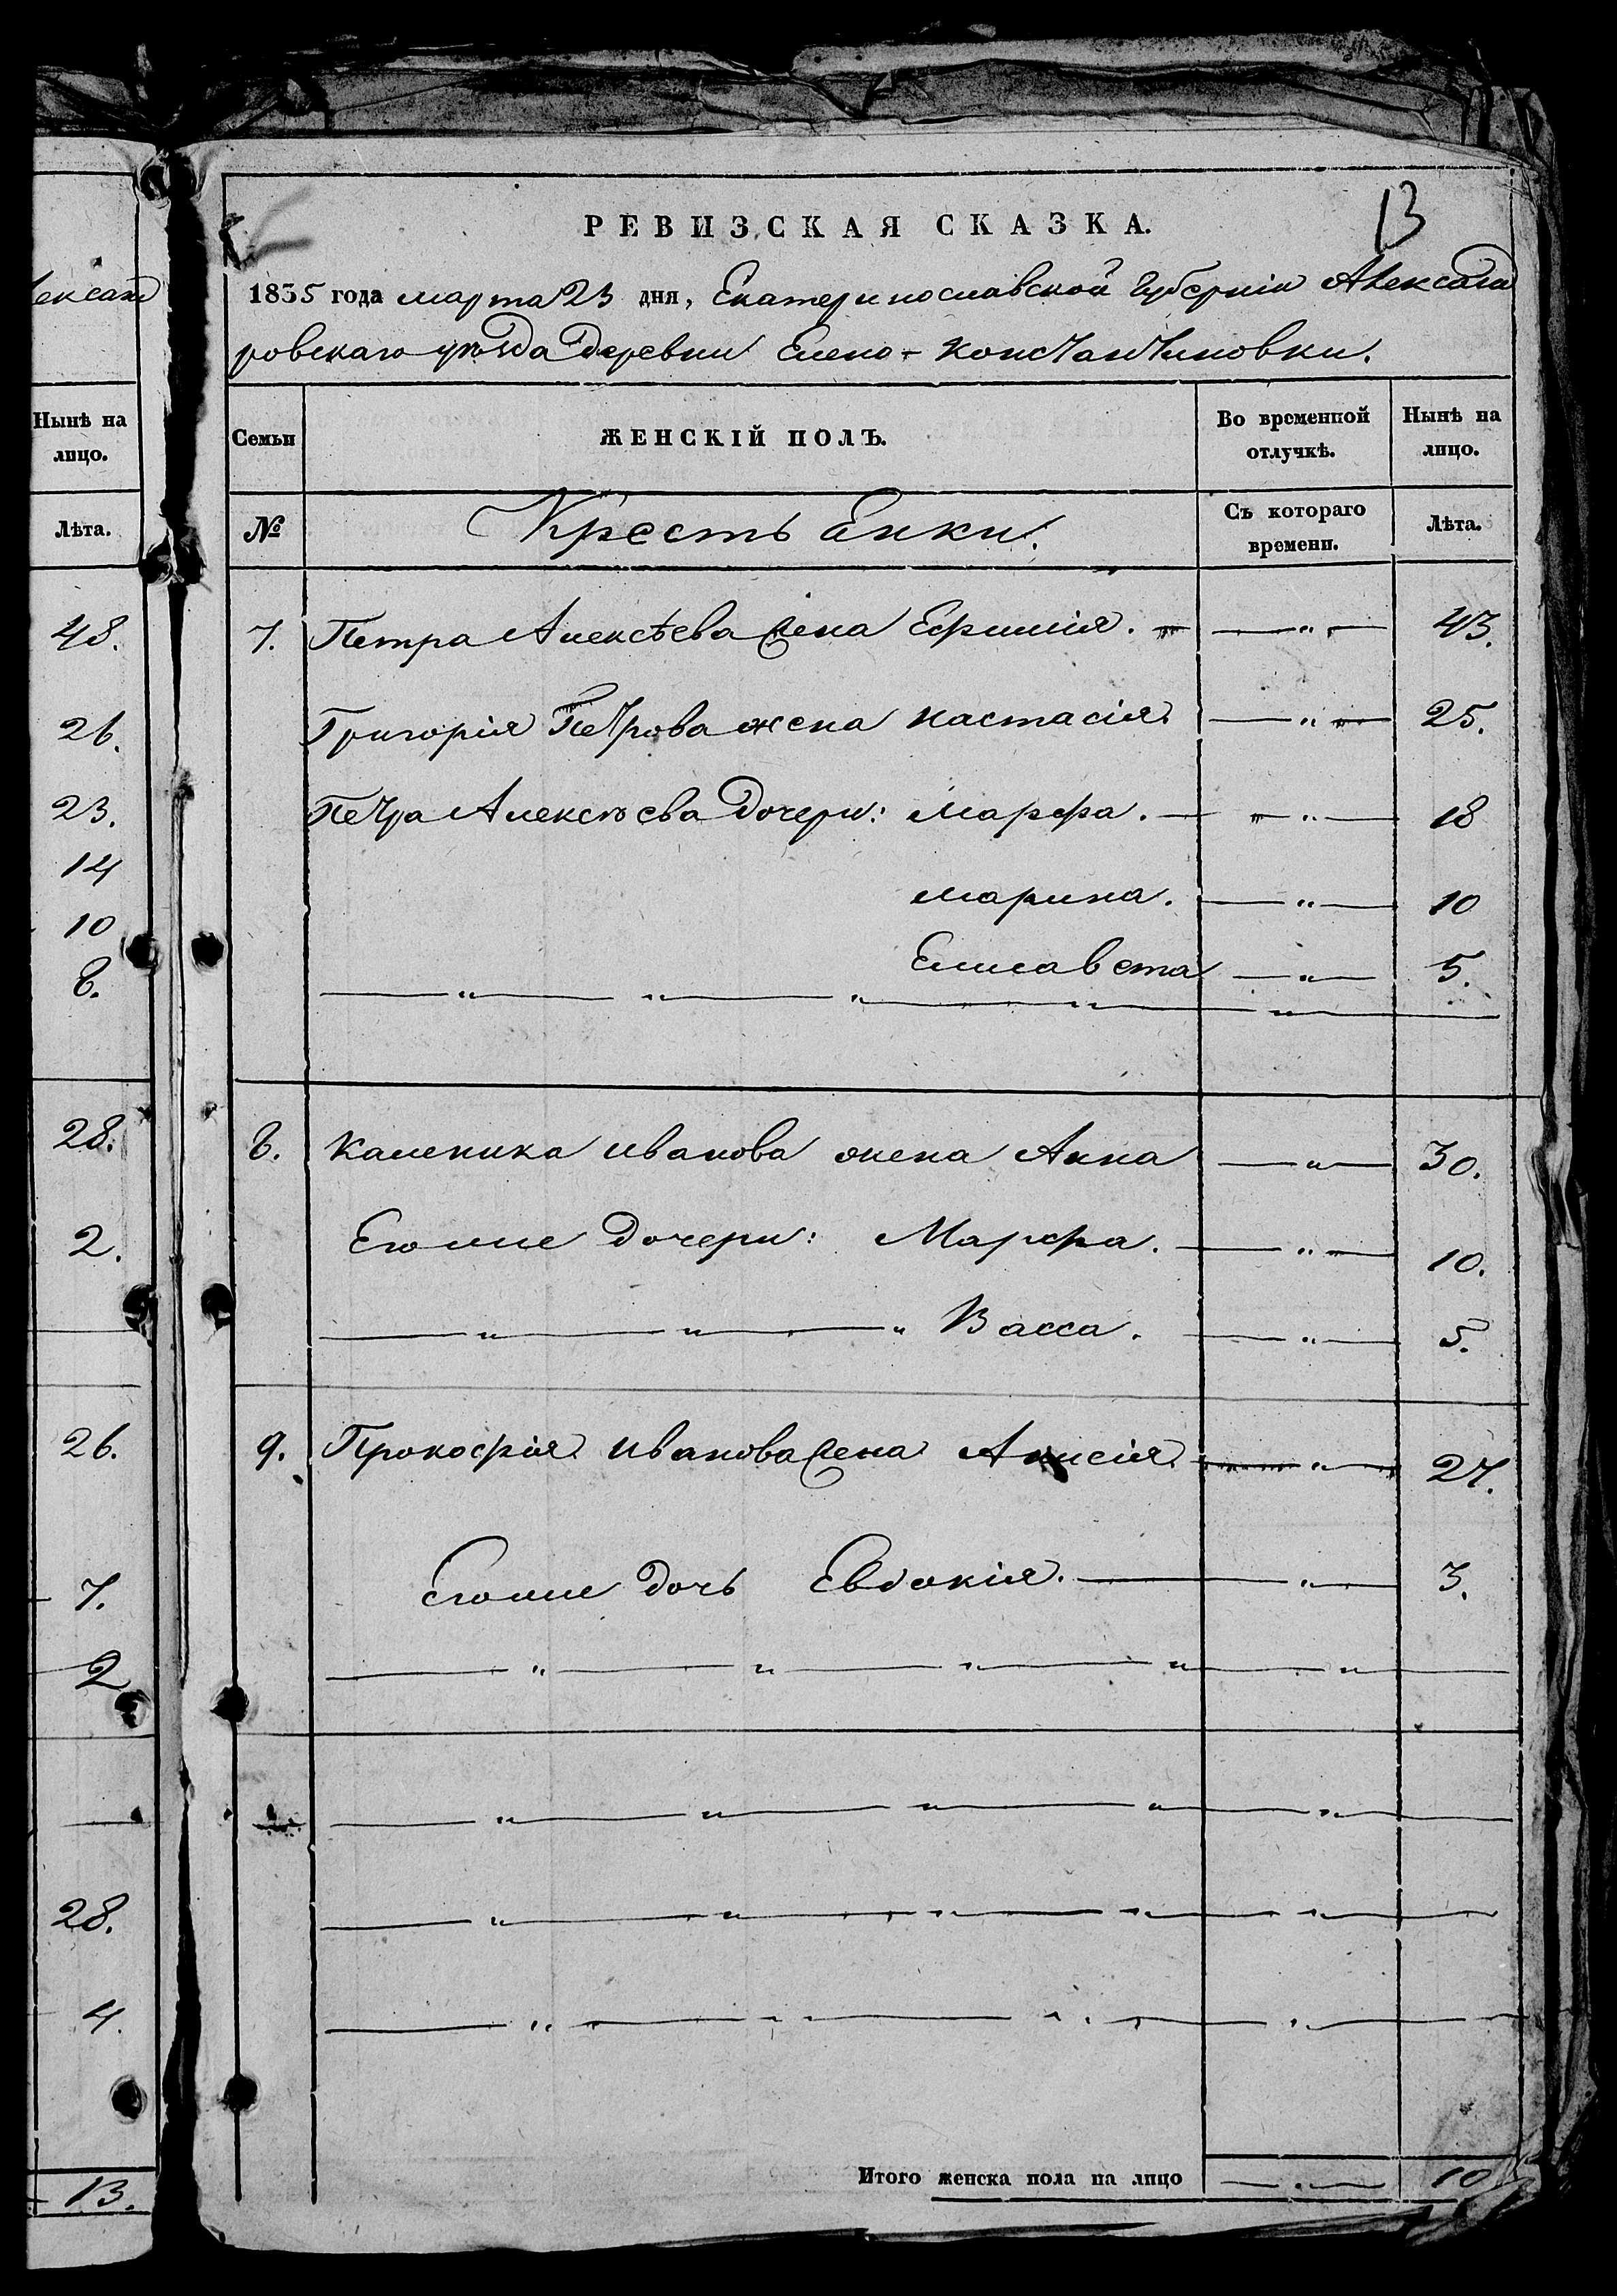 ександ
Нынѣ на
лицо.
Лѣта.
48.
26.
23.
14
10
8.
28.
2.
26.
7.
2
28.
4.
13.
13
РЕВИЗСКАЯ СКАЗКА.
1835 года марта 23 дня, Екатеринославской Губерніи Александ
ровскаго уѣзда Деревни Елено-Константиновки.
Семьи ЖЕНСКІЙ ПОЛЪ. Во временной отлучкѣ. Нынѣ на лицо.
№ Крестьянки. Съ котораго времени. Лѣта.
7. Петра Алексѣева жена Ефимія. — „ — 43.
Григорія Петрова жена Настасія. — „ — 25.
Петра Алексѣева Дочери: Марфа. — „ — 18
Марина. — „ — 10
Елисавета — „ — 5.
8. Каленика Иванова жена Анна — „ — 30.
Егоже Дочери: Марфа. — „ — 10.
— „ — „ — „ Васса. — „ — 5.
9. Прокофія Иванова жена Анисія — „ — 27.
Егоже Дочь Евдокія. — „ — 3.
Итого женска пола на лицо — „ — 10